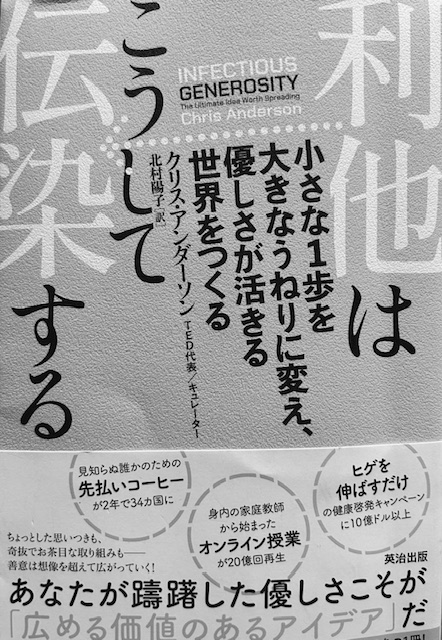 利他は
こうして
伝染する
INFECTIOUS
GENEROSITY
The Ultimate Idea Worth Spreading
Chris Anderson
小さな1歩を
大きなうねりに変え、
優しさが活きる
世界をつくる
クリス・アンダーソン TED代表/キュレーター
北村陽子[訳]
ヒゲを
伸ばすだけ
の健康啓発キャンペーン
に10億ドル以上
身内の家庭教師
から始まった
オンライン授業
が20億回再生
見知らぬ誰かのための
先払いコーヒー
が2年で34カ国に
ちょっとした思いつきも、
奇抜でお茶目な取り組みも──
善意は想像を超えて広がっていく!
英治出版
あなたが躊躇した優しさこそが
「広める価値のあるアイデア」だ